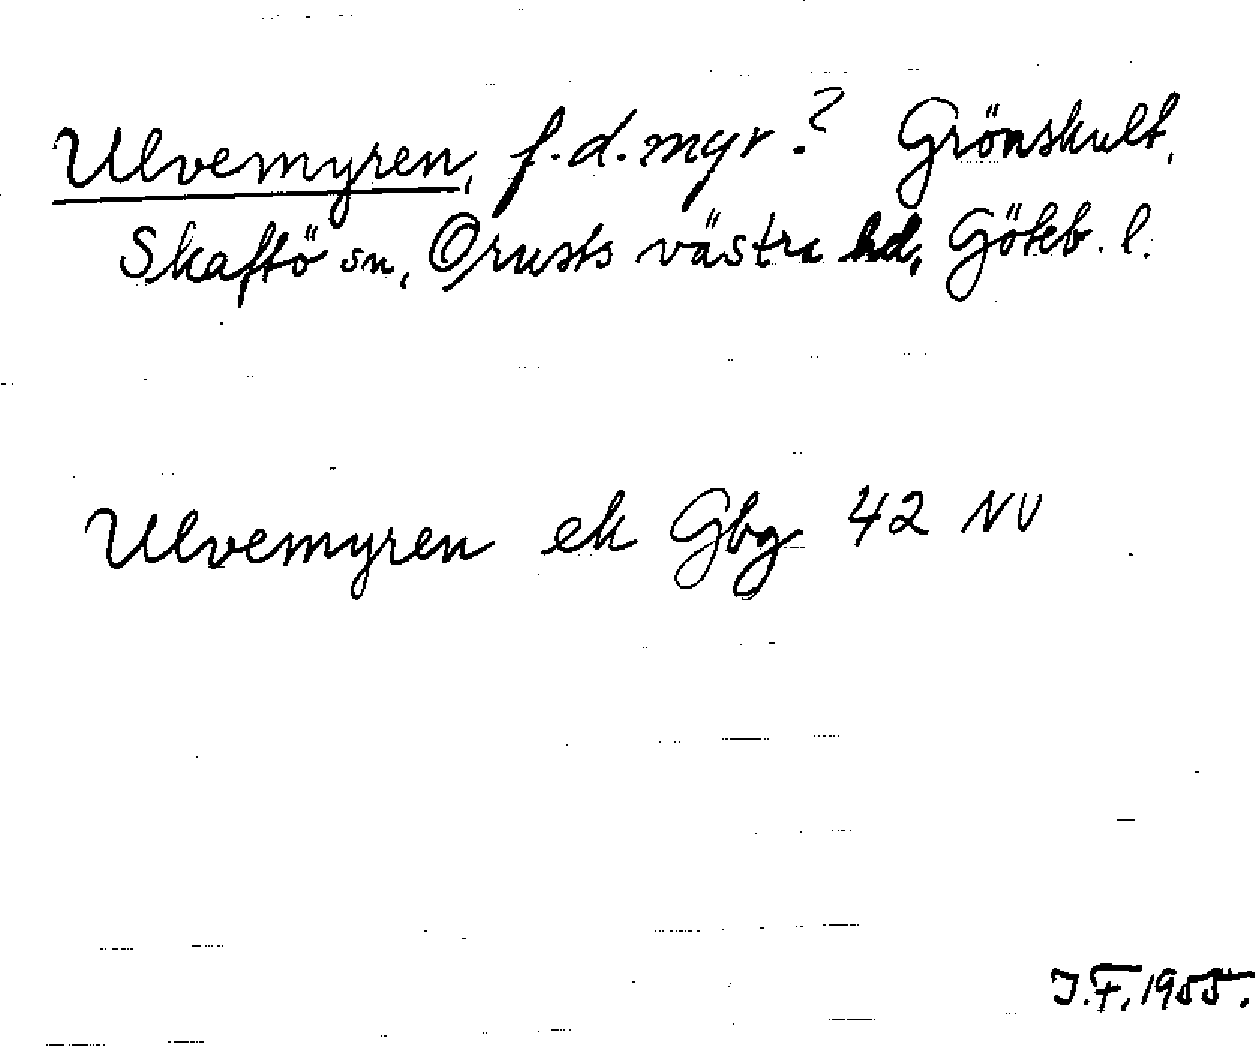 Ulvemyren, f.d. myr? Grönskult,
Skaftö sn, Orusts västra hd, Göteb. l.
Ulvemyren ek Gbg 42 NV
J.F. 1955.